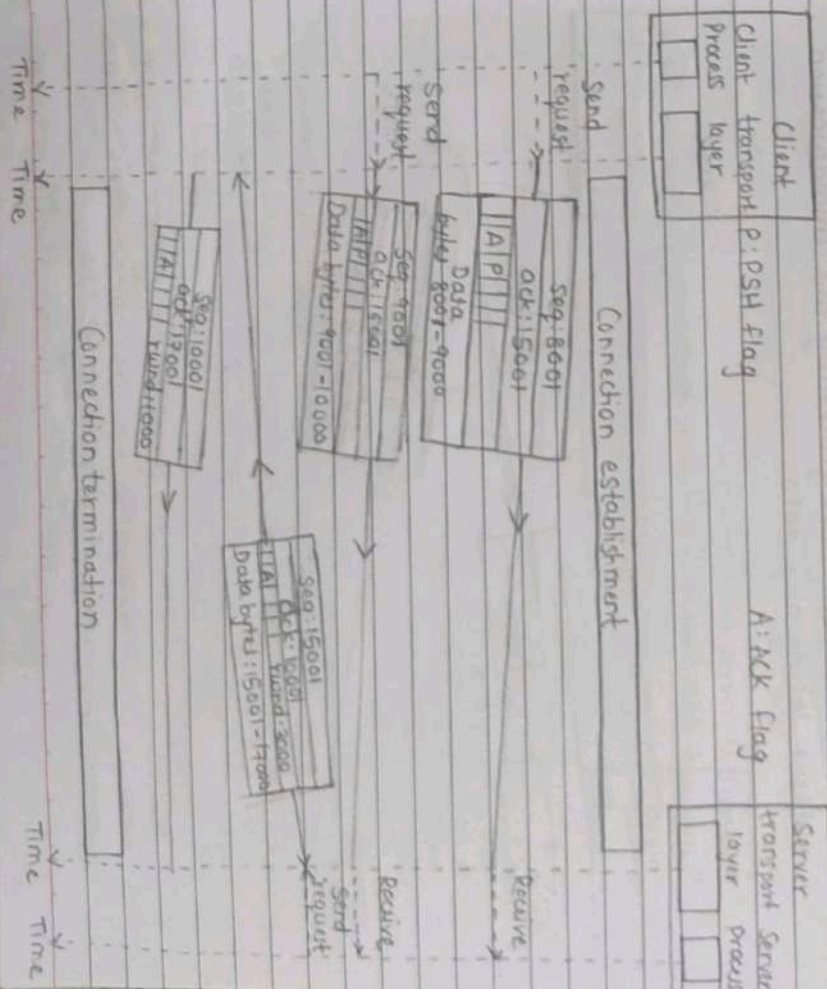 Client
Client transport
process layer
P: PSH flag
A: ACK flag
Server
transport Server
layer process
Connection establishment
Send
request
seq: 8001
ack: 15001
A P
Data
bytes 8001-9000
Receive
Send
request
Seq: 9001
ack: 15001
A P
Data bytes: 9001-10000
Receive
Send
request
Seq: 15001
ack: 10001
A rwnd: 3000
Data bytes: 15001-17000
Seq: 10001
ack: 17001
A rwnd: 1000
Connection termination
Time
Time
Time
Time